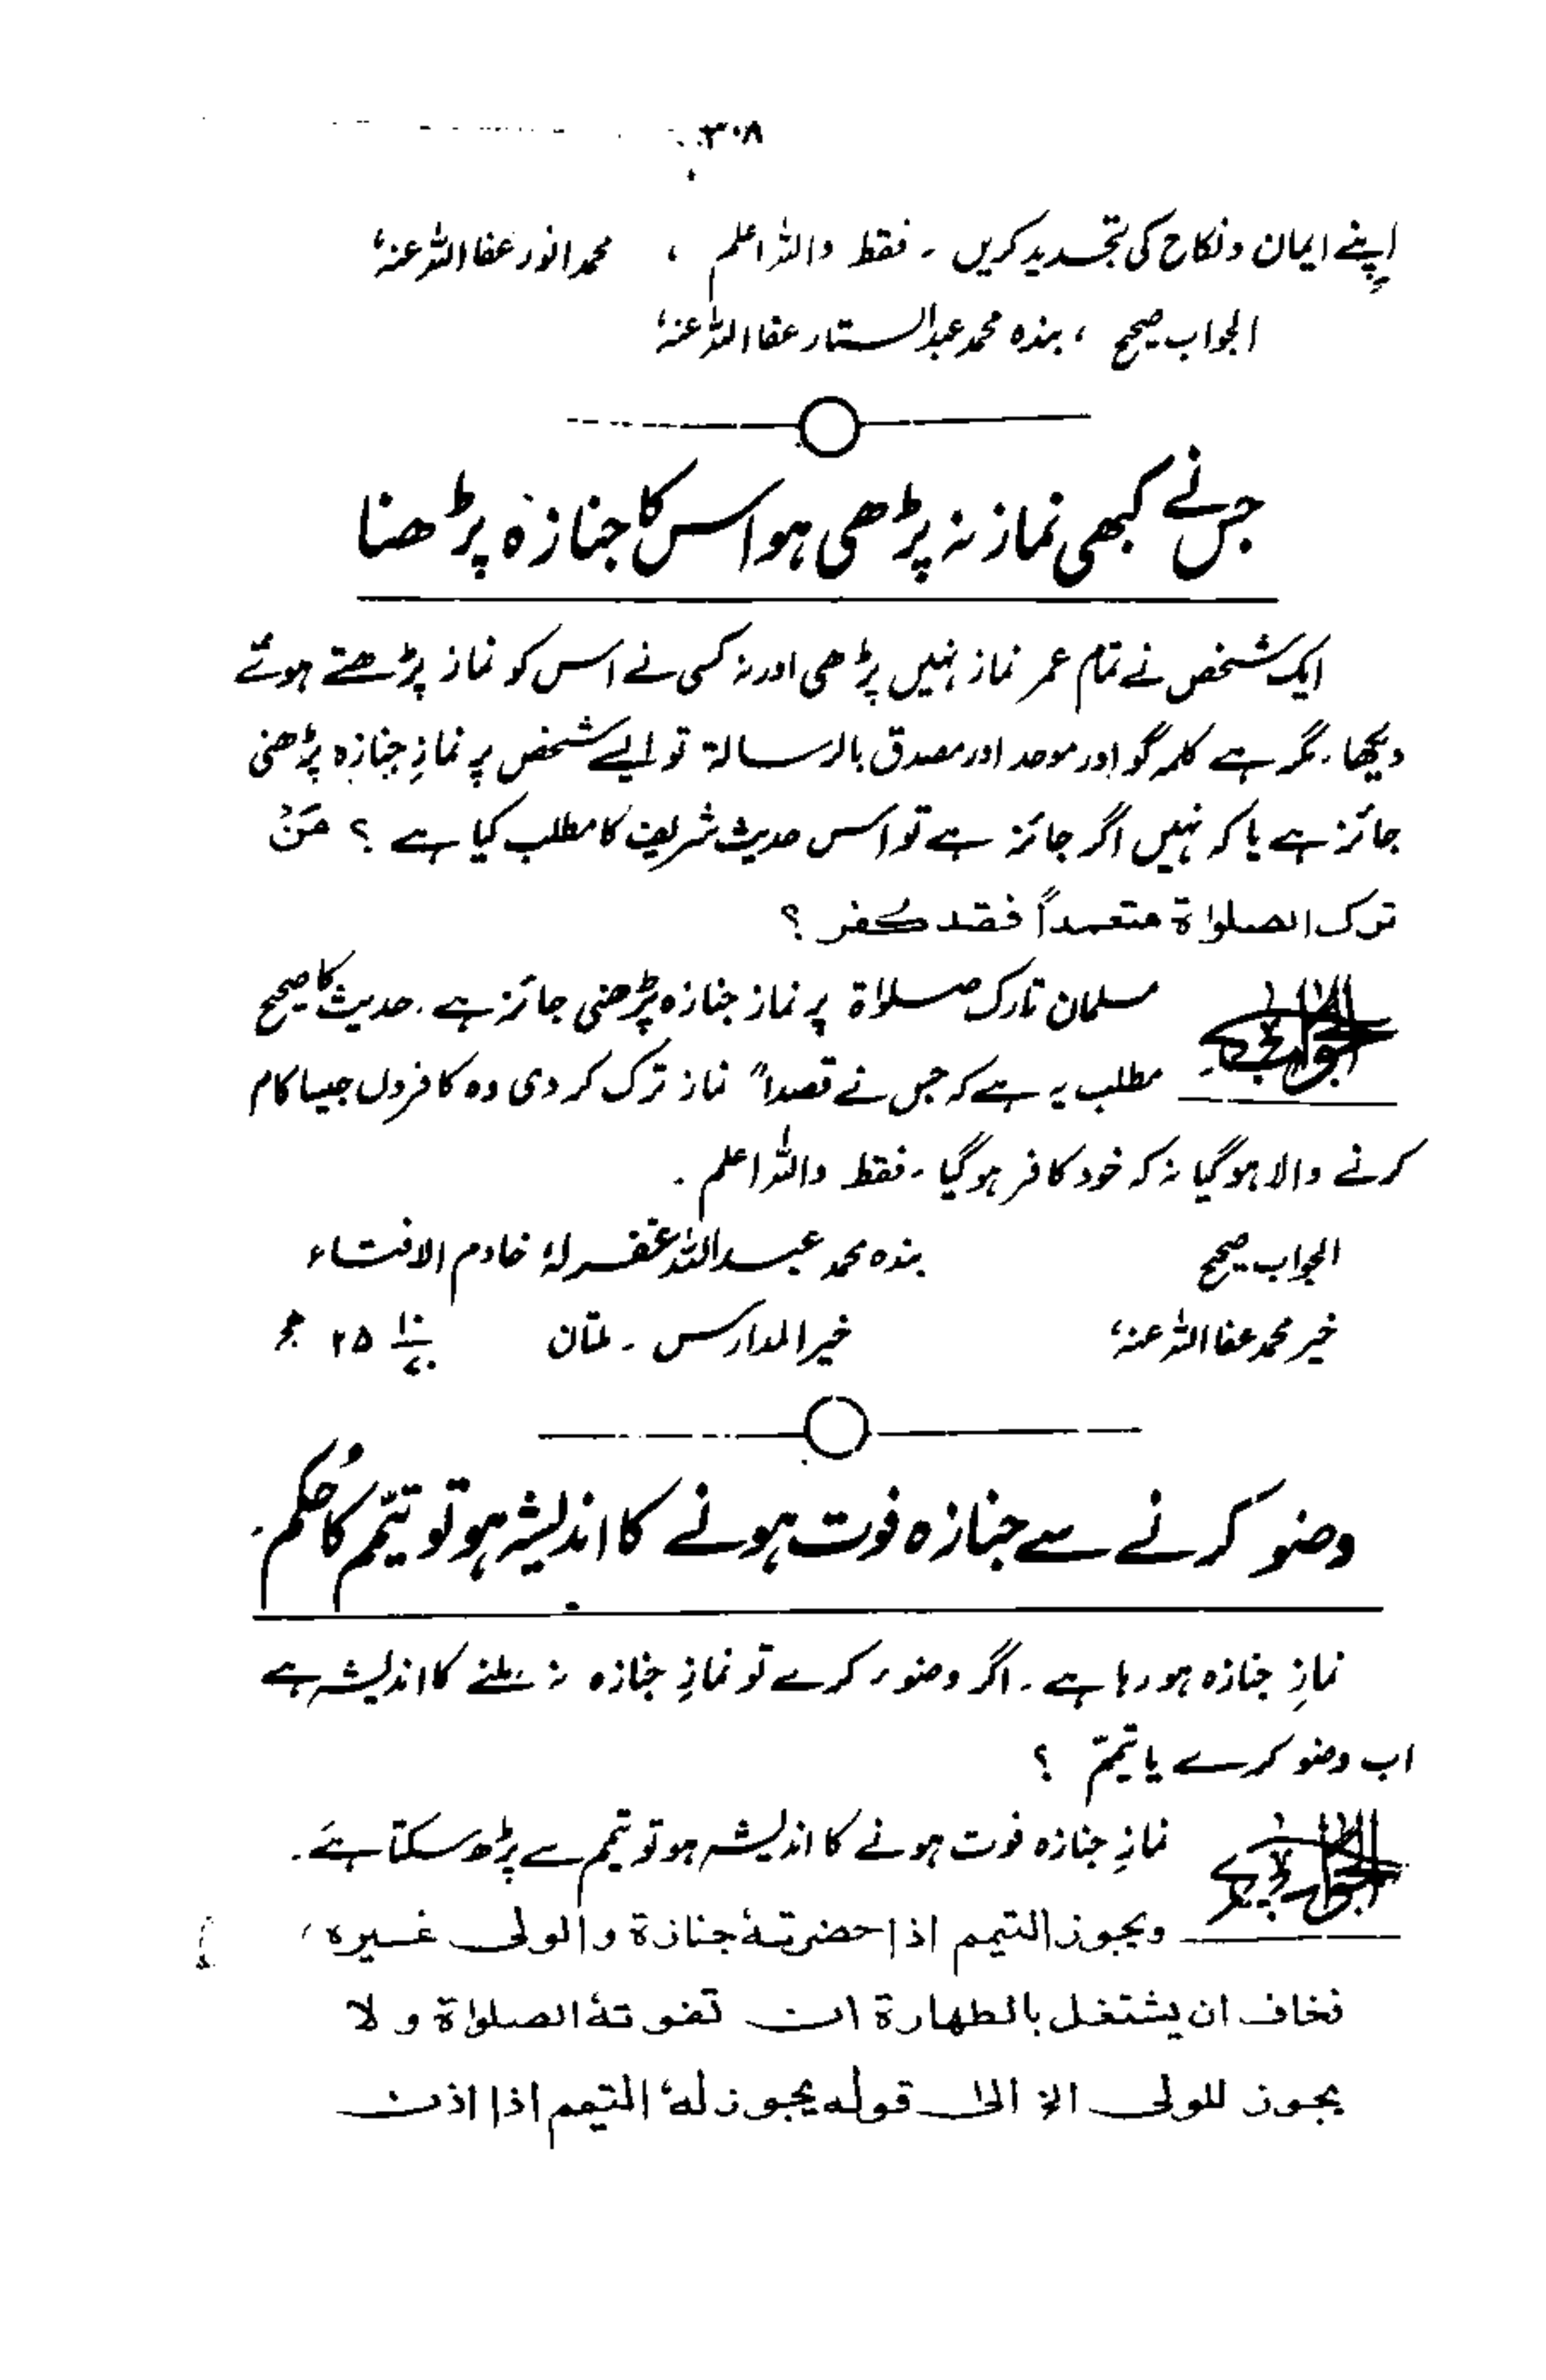 ۳۰۸
اپنے ایمان و نکاح کی تجدید کریں ۔ فقط واللہ اعلم ، محمد انور عفا اللہ عنہٗ
الجواب صحیح ، بندہ محمد عبدالستار عفا اللہ عنہٗ
جس نے کبھی نماز نہ پڑھی ہو اس کا جنازہ پڑھنا
ایک شخص نے تمام عمر نماز نہیں پڑھی اور نہ کسی نے اس کو نماز پڑھتے ہوئے
دیکھا ۔ مگر ہے کلمہ گو اور موحد اور مصدق بالرسالۃ تو ایسے شخص پر نمازِ جنازہ پڑھنی
جائز ہے یا کہ نہیں اگر جائز ہے تو اس حدیث شریف کا مطلب کیا ہے ؟ مَنْ
ترک الصلوٰة متعمداً فقد کفر ؟
الجواب مسلمان تارک صلاۃ پر نماز جنازہ پڑھنی جائز ہے ۔ حدیث کا صحیح
مطلب یہ ہے کہ جس نے قصداً نماز ترک کر دی وہ کافروں جیسا کام
کرنے والا ہو گیا نہ کہ خود کافر ہو گیا ۔ فقط واللہ اعلم ۔
الجواب صحیح بندہ محمد عبداللہ غفرلہٗ خادم الافتاء
خیر محمد عفا اللہ عنہٗ خیر المدارس ۔ ملتان
وضو کرنے سے جنازہ فوت ہونے کا اندیشہ ہو تو تیمّم کا حُکم ۔
نمازِ جنازہ ہو رہا ہے ۔ اگر وضوء کرے تو نمازِ جنازہ نہ ملنے کا اندیشہ ہے
اب وضو کرے یا تیمّم ؟
الجواب نمازِ جنازہ فوت ہونے کا اندیشہ ہو تو تیمم سے پڑھ سکتا ہے ۔
ویجوز التیمم اذا حضرتہٗ جنازة والولی غیرہ ،
فخاف ان یشتغل بالطھارة ان تفوتہٗ الصلوٰة ولا
یجوز للولی الخ الی قولہ یجوز لہٗ التیمم اذا اذن